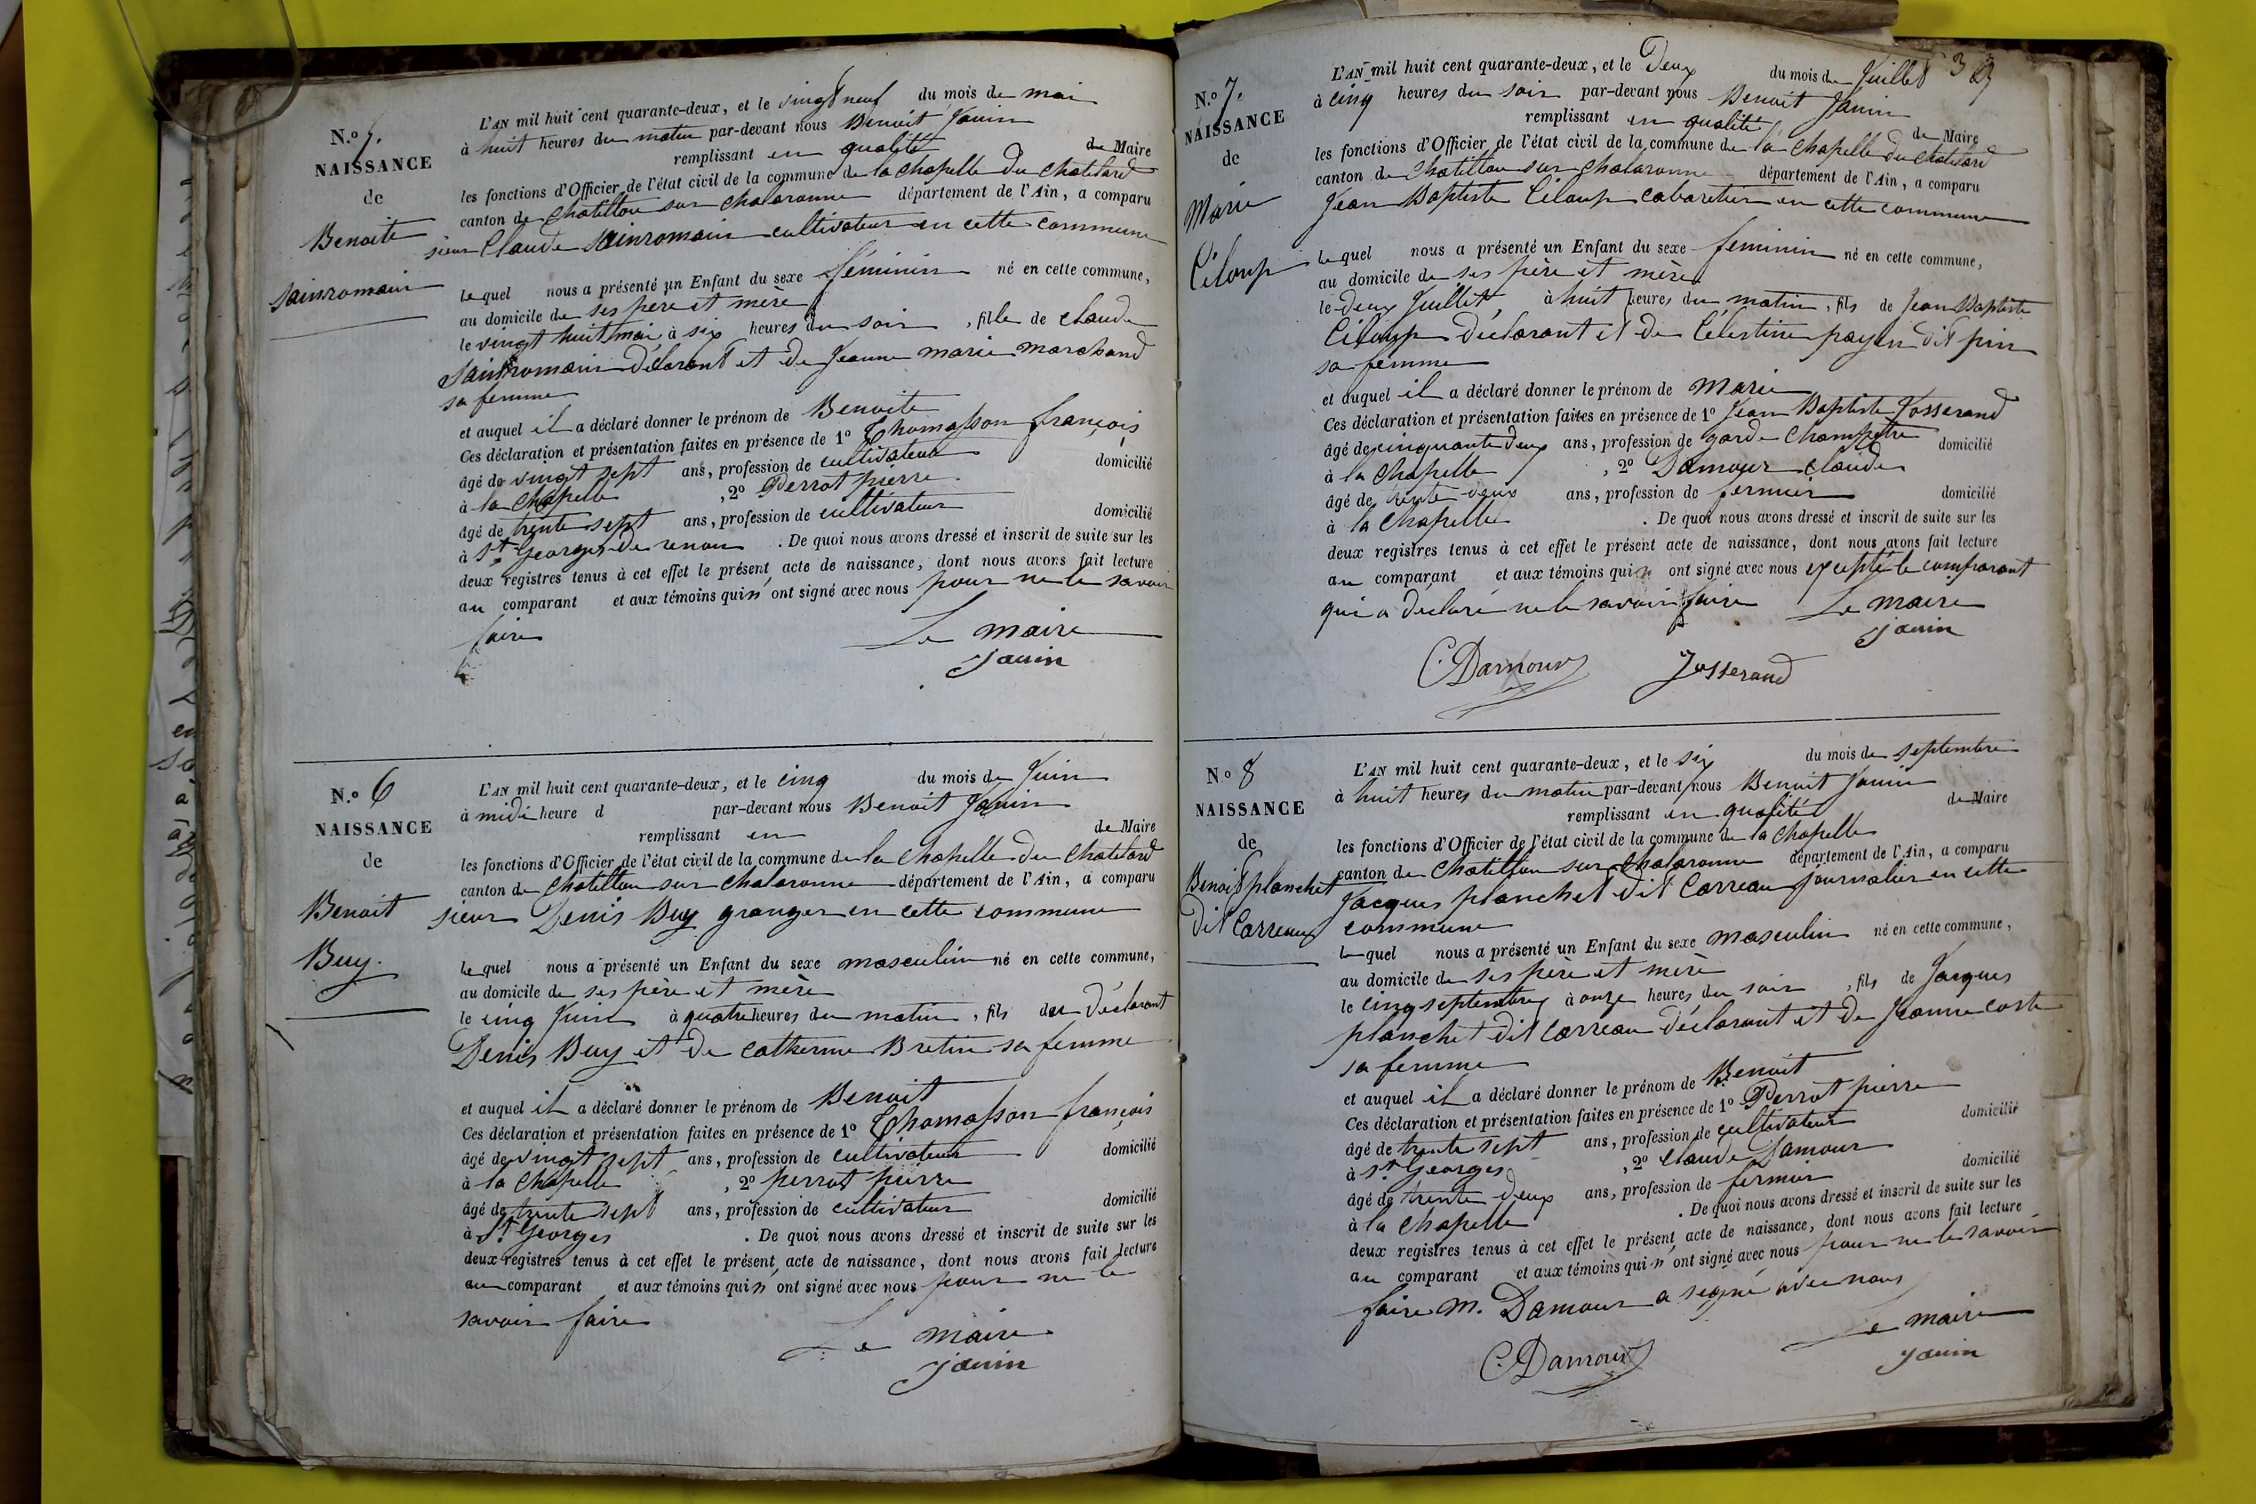 N.º 5.
NAISSANCE
de
Benoite
Sainromain
L'AN mil huit cent quarante-deux, et le vingt neuf du mois de mai
à huit heures du matin par-devant nous Benoit Janin
remplissant en qualité de Maire
les fonctions d'Officier de l'état civil de la commune de la Chapelle du Chatelard
canton de Chatillon sur Chalaronne département de l'Ain, a comparu
sieur Claude Sainromain cultivateur en cette commune
lequel nous a présenté un Enfant du sexe féminin né en cette commune,
au domicile de ses père et mère
le vingt huit mai à six heures du soir, fille de Claude
Sainromain déclarant et de Jeanne marie marchand
sa femme
et auquel il a déclaré donner le prénom de Benoite
Ces déclaration et présentation faites en présence de 1º Thomasson françois
âgé de vingt sept ans, profession de cultivateur domicilié
à la Chapelle, 2º Perrot pierre
âgé de trente sept ans, profession de cultivateur domicilié
à St Georges de renon. De quoi nous avons dressé et inscrit de suite sur les
deux registres tenus à cet effet le présent acte de naissance, dont nous avons fait lecture
au comparant et aux témoins qui n' ont signé avec nous pour ne le savoir
faire Le maire
Janin
N.º 6
NAISSANCE
de
Benoit
Buy.
L'AN mil huit cent quarante-deux, et le cinq du mois de Juin
à midi heure d par-devant nous Benoit Janin
remplissant en de Maire
les fonctions d'Officier de l'état civil de la commune de la Chapelle du Chatelard
canton de Chatillon sur Chalaronne département de l'Ain, a comparu
sieur Denis Buy granger en cette commune
lequel nous a présenté un Enfant du sexe masculin né en cette commune,
au domicile de ses père et mère
le cinq Juin à quatre heures du matin, fils du déclarant
Denis Buy et de Catherine Bretin sa femme
et auquel il a déclaré donner le prénom de Benoit
Ces déclaration et présentation faites en présence de 1º Thomasson françois
âgé de vingt sept ans, profession de cultivateur domicilié
à la Chapelle, 2º perrot pierre
âgé de trente sept ans, profession de cultivateur domicilié
à St Georges. De quoi nous avons dressé et inscrit de suite sur les
deux registres tenus à cet effet le présent acte de naissance, dont nous avons fait lecture
au comparant et aux témoins qui n' ont signé avec nous pour ne le
savoir faire
Le maire
Janin
N.º 7.
NAISSANCE
de
Marie
Ciloup
L'AN mil huit cent quarante-deux, et le Deux du mois de Juillet 3
à cinq heures du soir par-devant nous Benoit Janin
remplissant en qualité de Maire
les fonctions d'Officier de l'état civil de la commune de la Chapelle du Chatelard
canton de Chatillon sur Chalaronne département de l'Ain, a comparu
Jean Baptiste Ciloup cabaretier en cette commune
lequel nous a présenté un Enfant du sexe feminin né en cette commune,
au domicile de ses père et mère
le deux Juillet, à huit heures du matin, fils de Jean Baptiste
Ciloup déclarant et de Célestine payen dit pin
sa femme
et auquel il a déclaré donner le prénom de Marie
Ces déclaration et présentation faites en présence de 1º Jean Baptiste Josserand
âgé de cinquante deux ans, profession de garde Champetre domicilié
à la Chapelle, 2º Damour Claude
âgé de trente deux ans, profession de fermier domicilié
à la Chapelle. De quoi nous avons dressé et inscrit de suite sur les
deux registres tenus à cet effet le présent acte de naissance, dont nous avons fait lecture
au comparant et aux témoins qui ont signé avec nous excepté le comparant
qui a déclaré ne le savoir faire Le maire
Janin
C. Damour Josserand
Nº 8
NAISSANCE
de
Benoit planchet
dit Carreau
L'AN mil huit cent quarante-deux, et le six du mois de septembre
à huit heures du matin par-devant nous Benoit Janin
remplissant en qualité de Maire
les fonctions d'Officier de l'état civil de la commune de la Chapelle
canton de Chatillon sur Chalaronne département de l'Ain, a comparu
Jacques planchet dit Carreau journalier en cette
commune
lequel nous a présenté un Enfant du sexe masculin né en cette commune,
au domicile de ses père et mère
le cinq septembre à onze heures du soir, fils de Jacques
planchet dit Carreau déclarant et de Jeanne coste
sa femme
et auquel il a déclaré donner le prénom de Benoit
Ces déclaration et présentation faites en présence de 1º Perrot pierre
âgé de trente sept ans, profession de cultivateur domicilié
à St Georges, 2º Claude Damour
âgé de trente deux ans, profession de fermier domicilié
à la Chapelle. De quoi nous avons dressé et inscrit de suite sur les
deux registres tenus à cet effet le présent acte de naissance, dont nous avons fait lecture
au comparant et aux témoins qui n' ont signé avec nous pour ne le savoir
faire M. Damour a signé avec nous
Le maire
C. Damour Janin